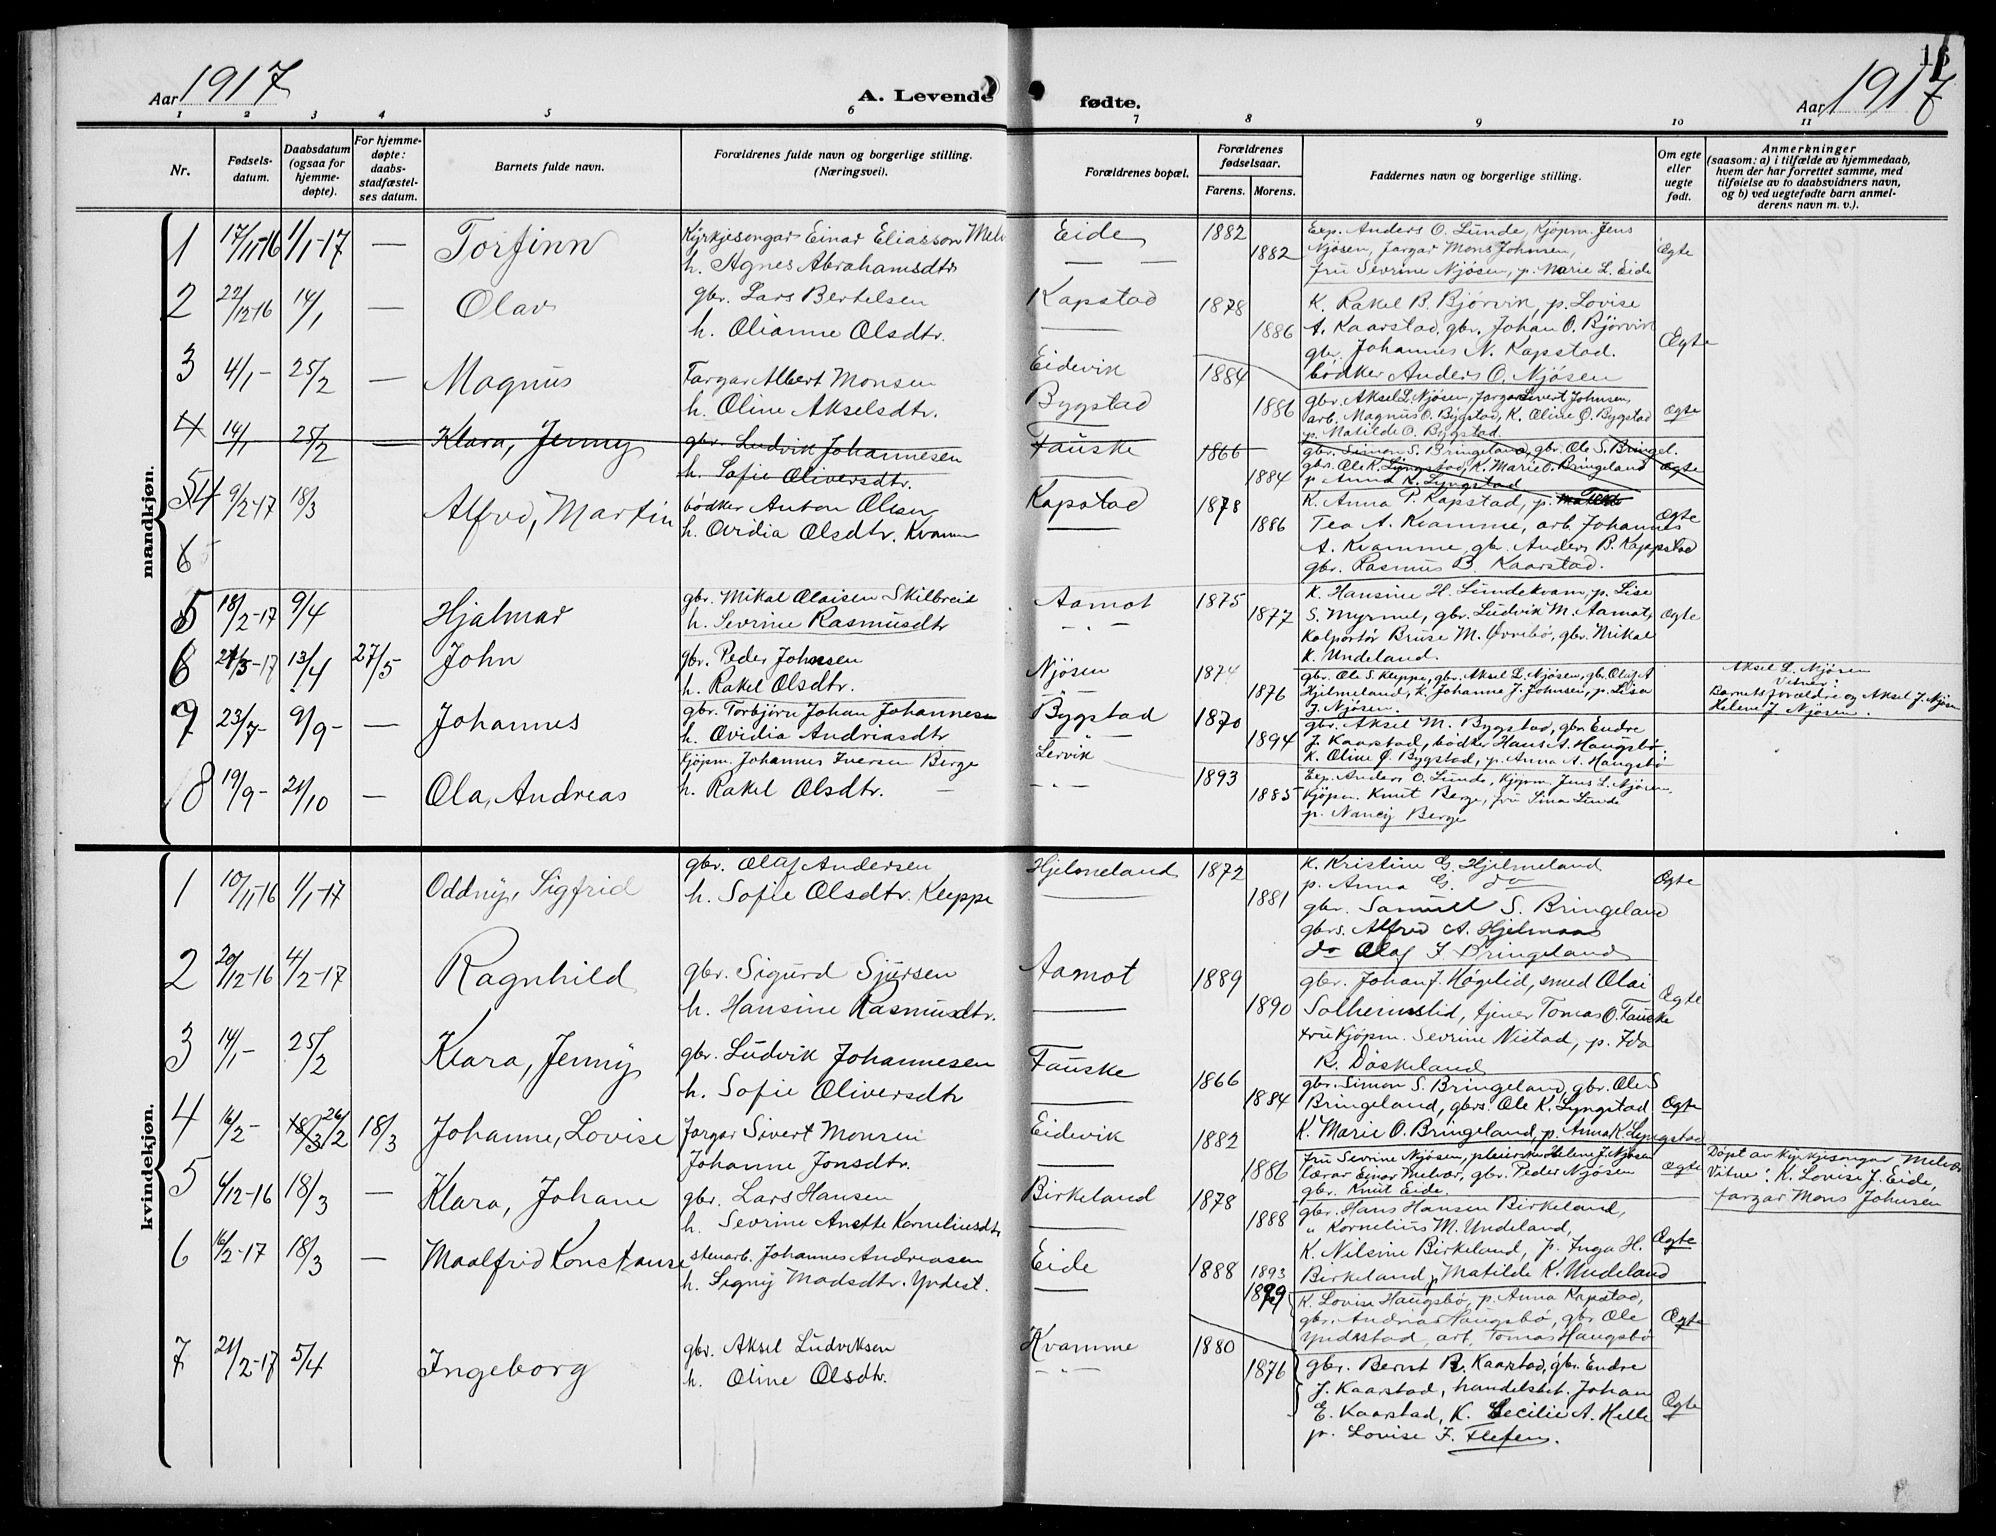 Aar 1917
A. Levende fødte.
Aar 1917
16
1 2 3 4 5 6 7 8 9 10 11
Nr.
Fødsels-
datum.
Daabsdatum
(ogsaa for
hjemme-
døpte).
For hjemme-
døpte:
daabs-
stadfæstel-
ses datum.
Barnets fulde navn.
Forældrenes fulde navn og borgerlige stilling.
(Næringsvei).
Forældrenes bopæl.
Forældrenes
fødselsaar.
Farens. Morens.
Faddernes navn og borgerlige stilling.
Om egte
eller
uegte
født.
Anmerkninger
(saasom: a) i tilfælde av hjemmedaab,
hvem der har forrettet samme, med
tilføielse av to daabsvidners navn,
og b) ved uegtefødte barn anmel-
derens navn m. v.).
mandkjøn.
1 17/11-16 1/1-17 — Torfinn
Kyrkjesongar Einar Eliasson Melv
h. Agnes Abrahamsdtr
Eide 1882 1882
Exp. Anders O. Lunde, Kjøpm. Jens
Njøsen, Fargar Mons Johnsen,
fru Sevrine Njøsen, p. Marie L. Eide
Ægte
2 22/12-16 14/1 — Olav
gbr. Lars Bertelsen
h. Olianne Olsdtr.
Kapstad 1878 1886
K. Rakel B. Bjørvik, p. Lovise
A. Kaarstad, gbr. Johan O. Bjørvik
gbr. Johannes N. Kapstad.
bødker Anders O. Njøsen
Ægte
3 4/1- 25/2 — Magnus
Fargar Albert Monsen
h. Oline Akselsdtr.
Eidevik
Bygstad
1884 1886
gbr. Aksel L. Njøsen, fargar Sivert Johnsen,
arb. Magnus O. Bygstad, K. Oline O. Bygstad
p. Matilde O. Bygstad.
Ægte
4 14/1 25/2 — Klara, Jenny
gbr. Ludvik Johannesen
h. Sofie Oliversdtr.
Fauske 1866 1884
gbr. Simon S. Bringeland, gbr. Ole S. Bringel.
gbrs. Ole K. Lyngstad, K. Marie O. Bringeland
p Anna K. Lyngstad
Ægte
54 9/2-17 18/3 Alfred, Martin
bødker Anton Olsen,
h. Ovidia Olsdtr. Kvamm
Kapstad 1878 1886
K. Anna P. Kapstad, p.
Tea A. Kvamme, arb. Johannes
A. Kvamme, gbr. Anders B. Kappstad
gbr. Rasmus B. Kaarstad.
Ægte
6
5 18/2-17 9/4 Hjalmar
gbr. Mikal Olaisen Skilbreid
h. Sevrine Rasmusdtr
Aamot 1875 1877
K. Hansine H. Lundekvam, p. Lise
S. Myrmel, gbr. Ludvik M. Aamot,
Kolportør Bruse M. Øvrebø, gbr. Mikal
K. Undeland.
Ægte
6 21/3-17 13/4 27/5 John
gbr. Peder Johnsen
h. Rakel Olsdtr.
Njøsen 1874 1876
gbr. Ole S. Kleppe, gbr. Aksel L. Njøsen, gbr. Olaf A
Hjelmeland, k. Johanne J. Johnsen, p. Lisa
J. Njøsen.
Aksel L. Njøsen
Vitner:
Barnets forældre og Aksel J. Njøsen
Helene J Njøsen.
7 23/7- 9/9- — Johannes
gbr. Torbjørn Johan Johannesen
h. Ovidia Andriasdtr
Bygstad 1870 1894
gbr. Aksel M. Bygstad, gbr. Endre
J. Kaarstad, bødker Hans A. Haugsbø.
K. Oline O. Bygstad, p. Anna A. Haugsbø
8 19/9- 21/10 — Ola, Andreas
Kjøpm. Johannes Iversen Berge
h. Rakel Olsdtr.
Lervik 1893 1885
Exp. Anders O. Lunde, Kjøpm. Jens L. Njøsen,
Kjøpm. Knut Berge, fru Sina Lunde
p. Nancy Berge
kvindekjøn.
1 10/11-16 1/1-17 Oddny, Sigfrid
gbr. Olaf Andersen
h. Sofie Olsdtr. Kleppe
Hjelmeland 1872 1881
K. Kristine G. Hjelmeland
p. Anna G. do
gbr. Samuel S. Bringeland
gbrs. Alfred A. Hjelmaas
do Olaf J Bringeland
Ægte
2 20/12-16 4/2-17 Ragnhild
gbr. Sigurd Sjursen
h. Hansine Rasmusdtr.
Aamot 1889 1890
gbr. Johan J. Høgelid, smed Olai
Solheimslid, tjener Tomas O. Fauske
fru Kjøpm. Sevrine Nistad, p. Ida
R. Døskeland
Ægte
3 14/1- 25/2 Klara, Jenny
gbr. Ludvik Johannesen
h. Sofie Oliversdtr
Fauske 1866 1884
gbr. Simon S. Bringeland, gbr. Ole S
Bringeland, gbrs. Ole K. Lyngstad
K. Marie O. Bringeland, p. Anna K. Lyngstad
Ægte
4 16/2- 18/3 26/2 18/3 Johanne, Lovise
Fargar Sivert Monsen
Johanne Jonsdtr.
Eidevik 1882 1886
fru Sevrine Njøsen, pleierske Helene J. Njøsen
lærar Einar Melvær, gbr. Peder Njøsen
gbr. Knut Eide.
Ægte
Døpt av Kyrkjesongar Melvær
Vitne: K. Lovise J. Eide,
fargar Mons Johnsen
5 6/12-16 18/3 — Klara, Johane
gbr. Lars Hansen
h. Sevrine Anette Korneliusdtr
Birkeland 1878 1888
gbr. Hans Hansen Birkeland,
" Kornelius M. Undeland,
K. Nilsine Birkeland, p. Inga H.
Birkeland, p Matilde K. Undeland
Ægte
6 16/2-17 18/3 — Maalfrid Konstanse
stenarb. Johannes Andreasen
h. Signy Madsdtr. Yndest.
Eide 1888 1893
K. Lovise Haugsbø, p. Anna Kapstad,
gbr. Andrias Haugsbø, gbr. Ole
Yndestad, arb. Tomas Haugsbø
Ægte
7 21/2-17 5/4 Ingeborg
gbr. Aksel Ludviksen
h. Oline Olsdtr.
Kvamme 1880 1876
gbr. Bernt R. Kaarstad, gbr. Endre
J. Kaarstad, handelsbet. Johan
E. Kaarstad, K. Cecilie A. Helle
p. Lovise J. Flefen.
Ægte